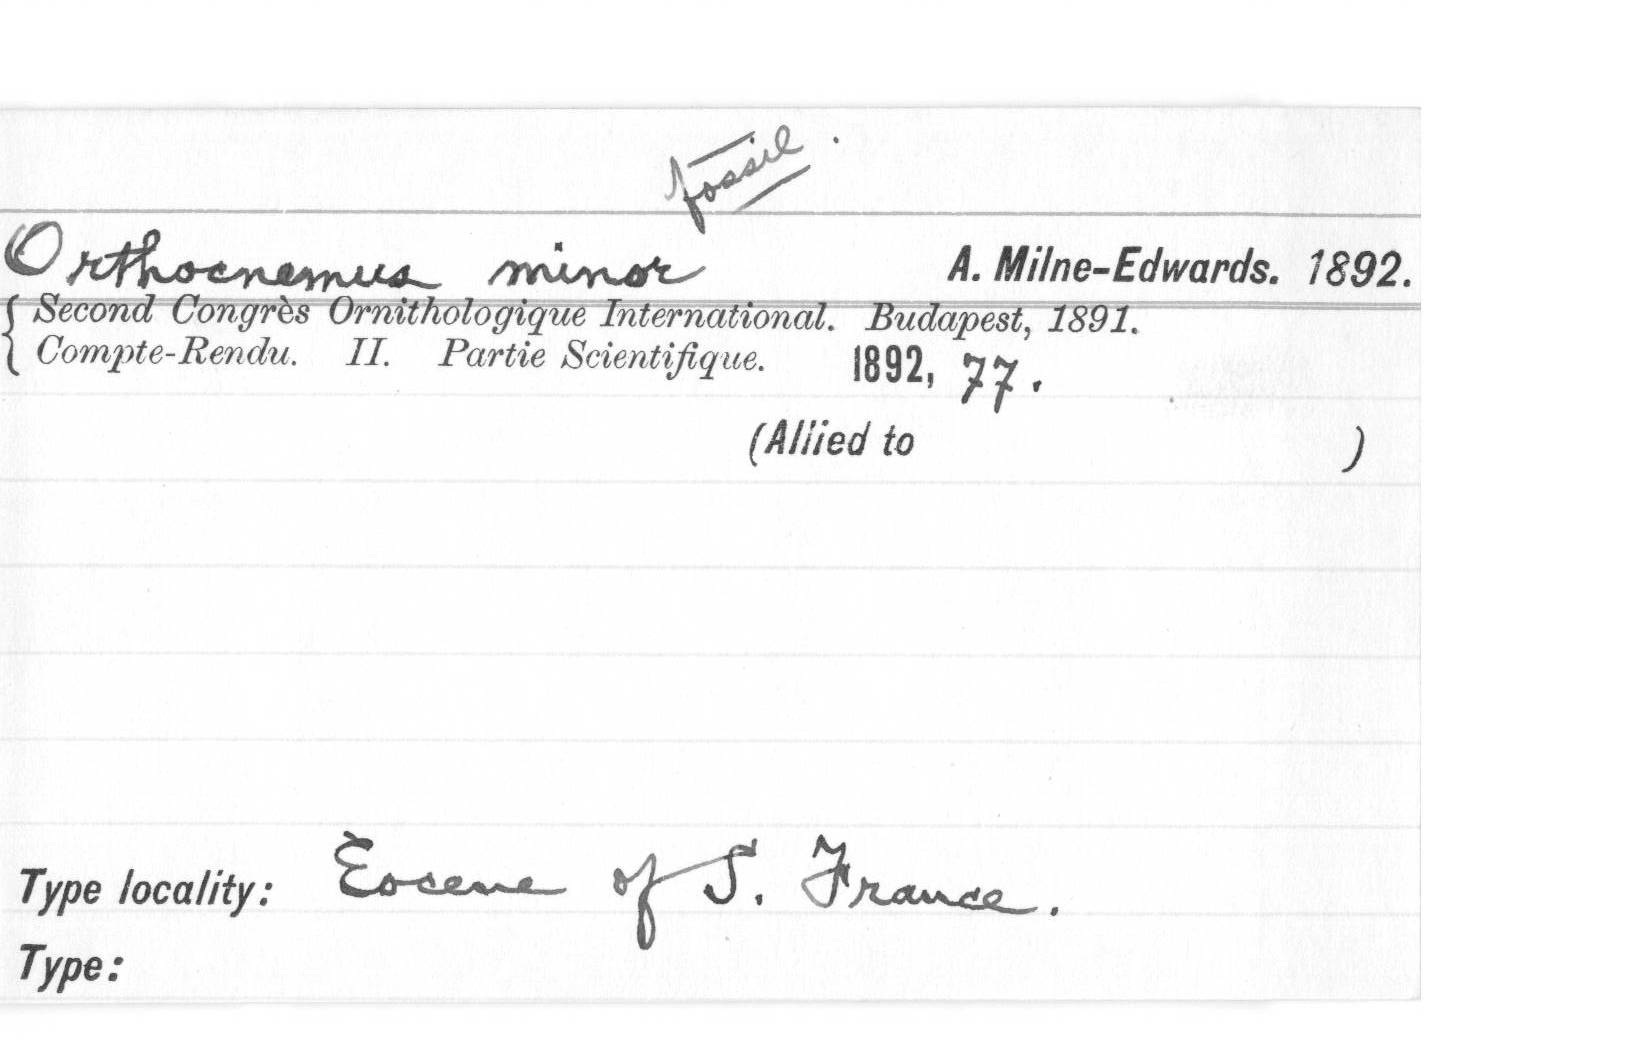 fossil.
Orthocnemus minor A. Milne-Edwards. 1892.
Second Congrès Ornithologique International. Budapest, 1891.
Compte-Rendu. II. Partie Scientifique. 1892, 77.
(Allied to )
Type locality: Eocene of S. France.
Type: